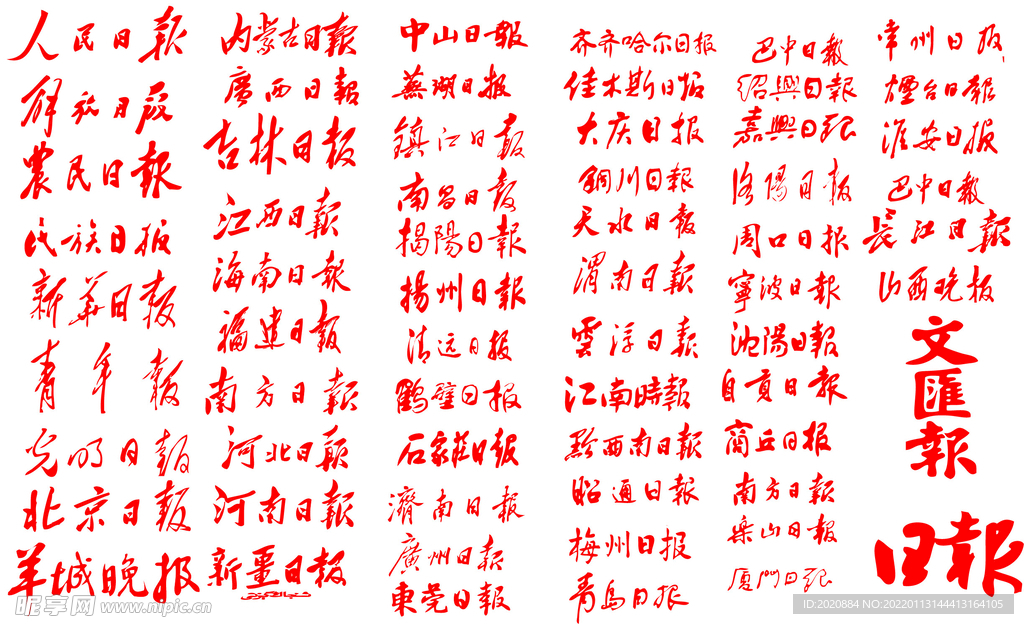 人民日報
解放日报
農民日報
民族日报
新華日報
青年報
光明日報
北京日報
羊城晚报
内蒙古日報
廣西日報
吉林日報
江西日報
海南日報
福建日報
南方日報
河北日報
河南日報
新疆日報
中山日報
蕪湖日报
鎮江日報
南昌日報
揭陽日報
揚州日報
清远日报
鶴壁日报
石家莊日報
濟南日報
廣州日報
東莞日報
齐齐哈尔日报
佳木斯日报
大庆日报
銅川日報
天水日報
渭南日報
雲浮日報
江南時報
黔西南日報
昭通日報
梅州日报
青島日报
巴中日報
紹興日報
嘉興日報
洛陽日報
周口日报
寧波日報
沈陽日報
自貢日報
商丘日报
南方日報
乐山日報
厦門日报
常州日报
煙台日報
淮安日报
巴中日報
長江日報
山西晚报
文匯報
日報
昵享网 www.nipic.cn
ID:2020884 NO:20220113144413164105